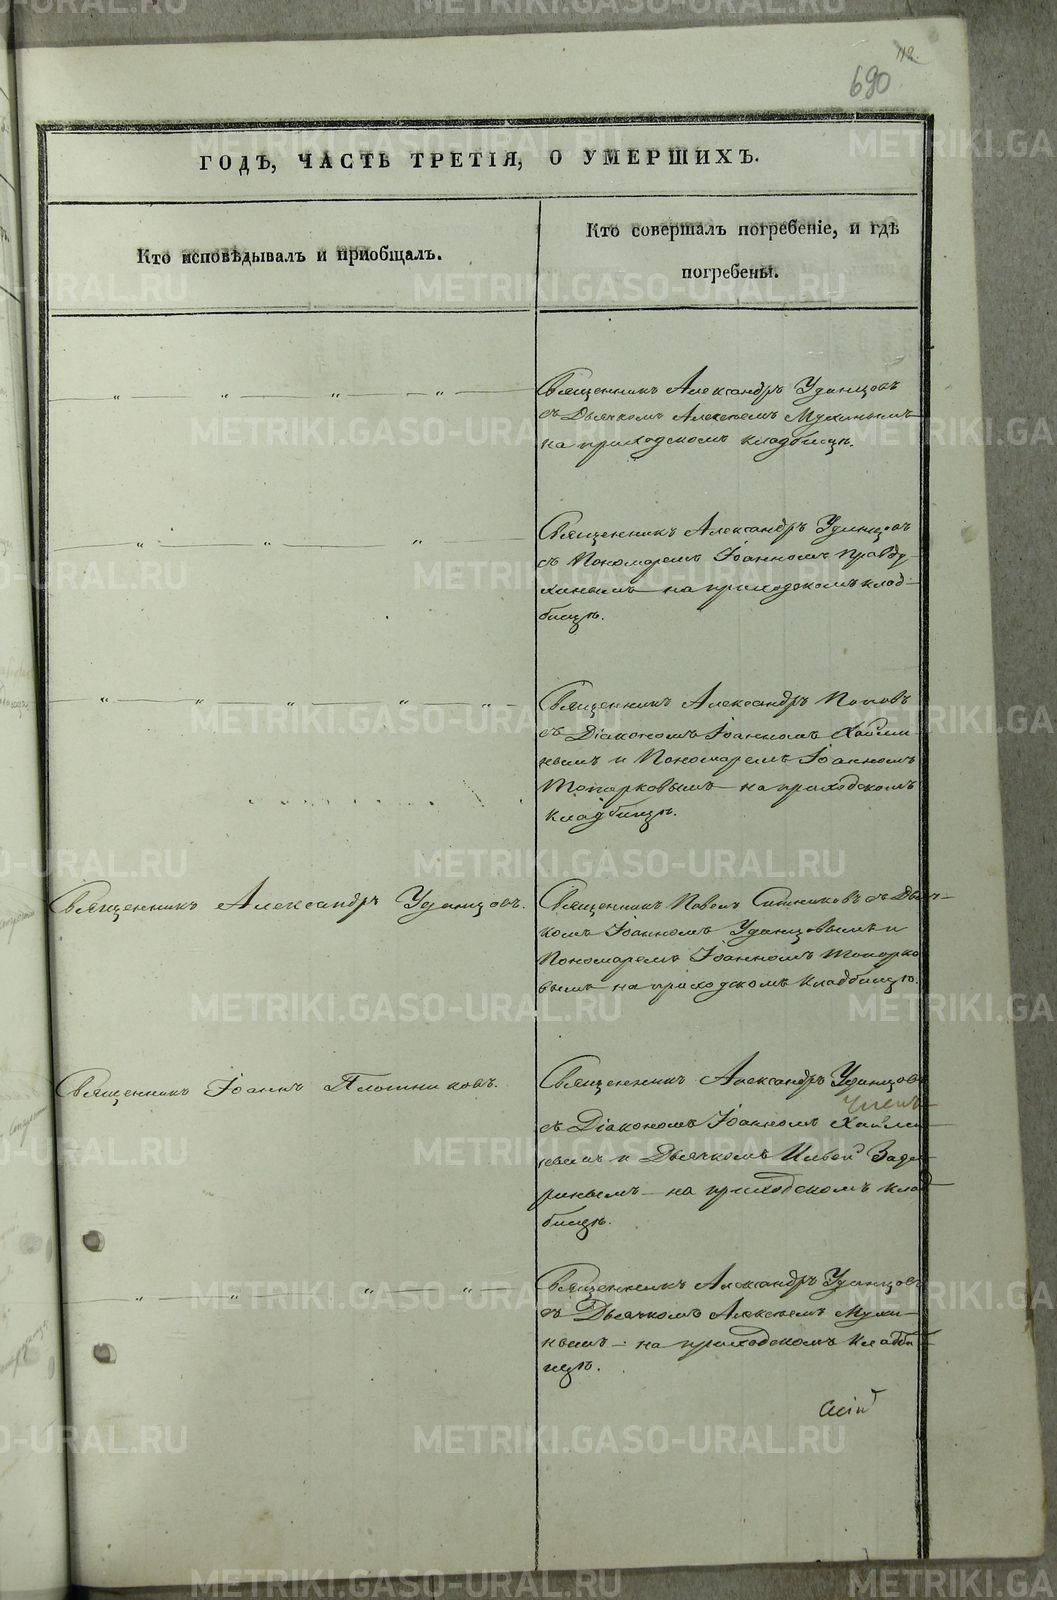 112.
690
ГОДЪ, ЧАСТЬ ТРЕТІЯ, О УМЕРШИХЪ.
Кто исповѣдывалъ и пріобщалъ.
Кто совершалъ погребеніе, и гдѣ
погребены.
Священникъ Александръ Удинцовъ
съ Дьячкомъ Алексѣемъ Мухинымъ
на приходскомъ кладбищѣ.
Священникъ Александръ Удинцовъ
съ Пономаремъ Іоанномъ Правду-
хинымъ на приходскомъ клад-
бищѣ.
Священникъ Александръ Поповъ
съ Діакономъ Іоанномъ
нымъ и Пономаремъ Іоанномъ
Топорковымъ на приходскомъ
кладбищѣ.
Священникъ Александръ Удинцовъ.
Священникъ Павелъ Ситниковъ съ Дьяч-
комъ Іоанномъ Удинцовымъ и
Пономаремъ Іоанномъ Топорко
вымъ на приходскомъ кладбищѣ.
Священникъ Іоаннъ Плотниковъ.
Священникъ Александръ Удинцовъ
съ Діакономъ Іоанномъ
нымъ и Дьячкомъ Ильей Заду-
ринымъ на приходскомъ клад-
бищѣ.
Священникъ Александръ Удинцовъ
съ Дьячкомъ Алексѣемъ Мухи-
нымъ на приходскомъ кладби-
щѣ.
METRIKI.GASO-URAL.RU